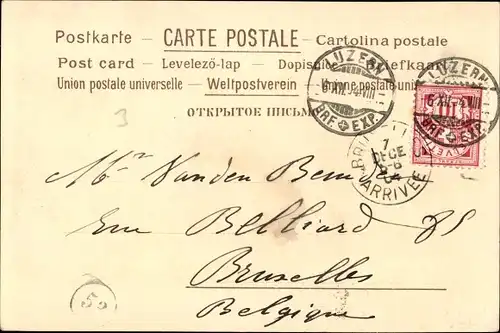 Postkarte – CARTE POSTALE – Cartolina postale
Post card – Levelező-lap – Dopisnice – Briefkaart
Union postale universelle – Weltpostverein – Unione postale univ
ОТКРЫТОЕ ПИСЬМО
LUZERN
6.XII.
VIII
BRF. EXP.
LUZERN
6.XII.
VIII
BRF. EXP.
7
DECE
ARRIVEE
3
Mr Vanden Bemden
Rue Belliard 85
Bruxelles
Belgique
52